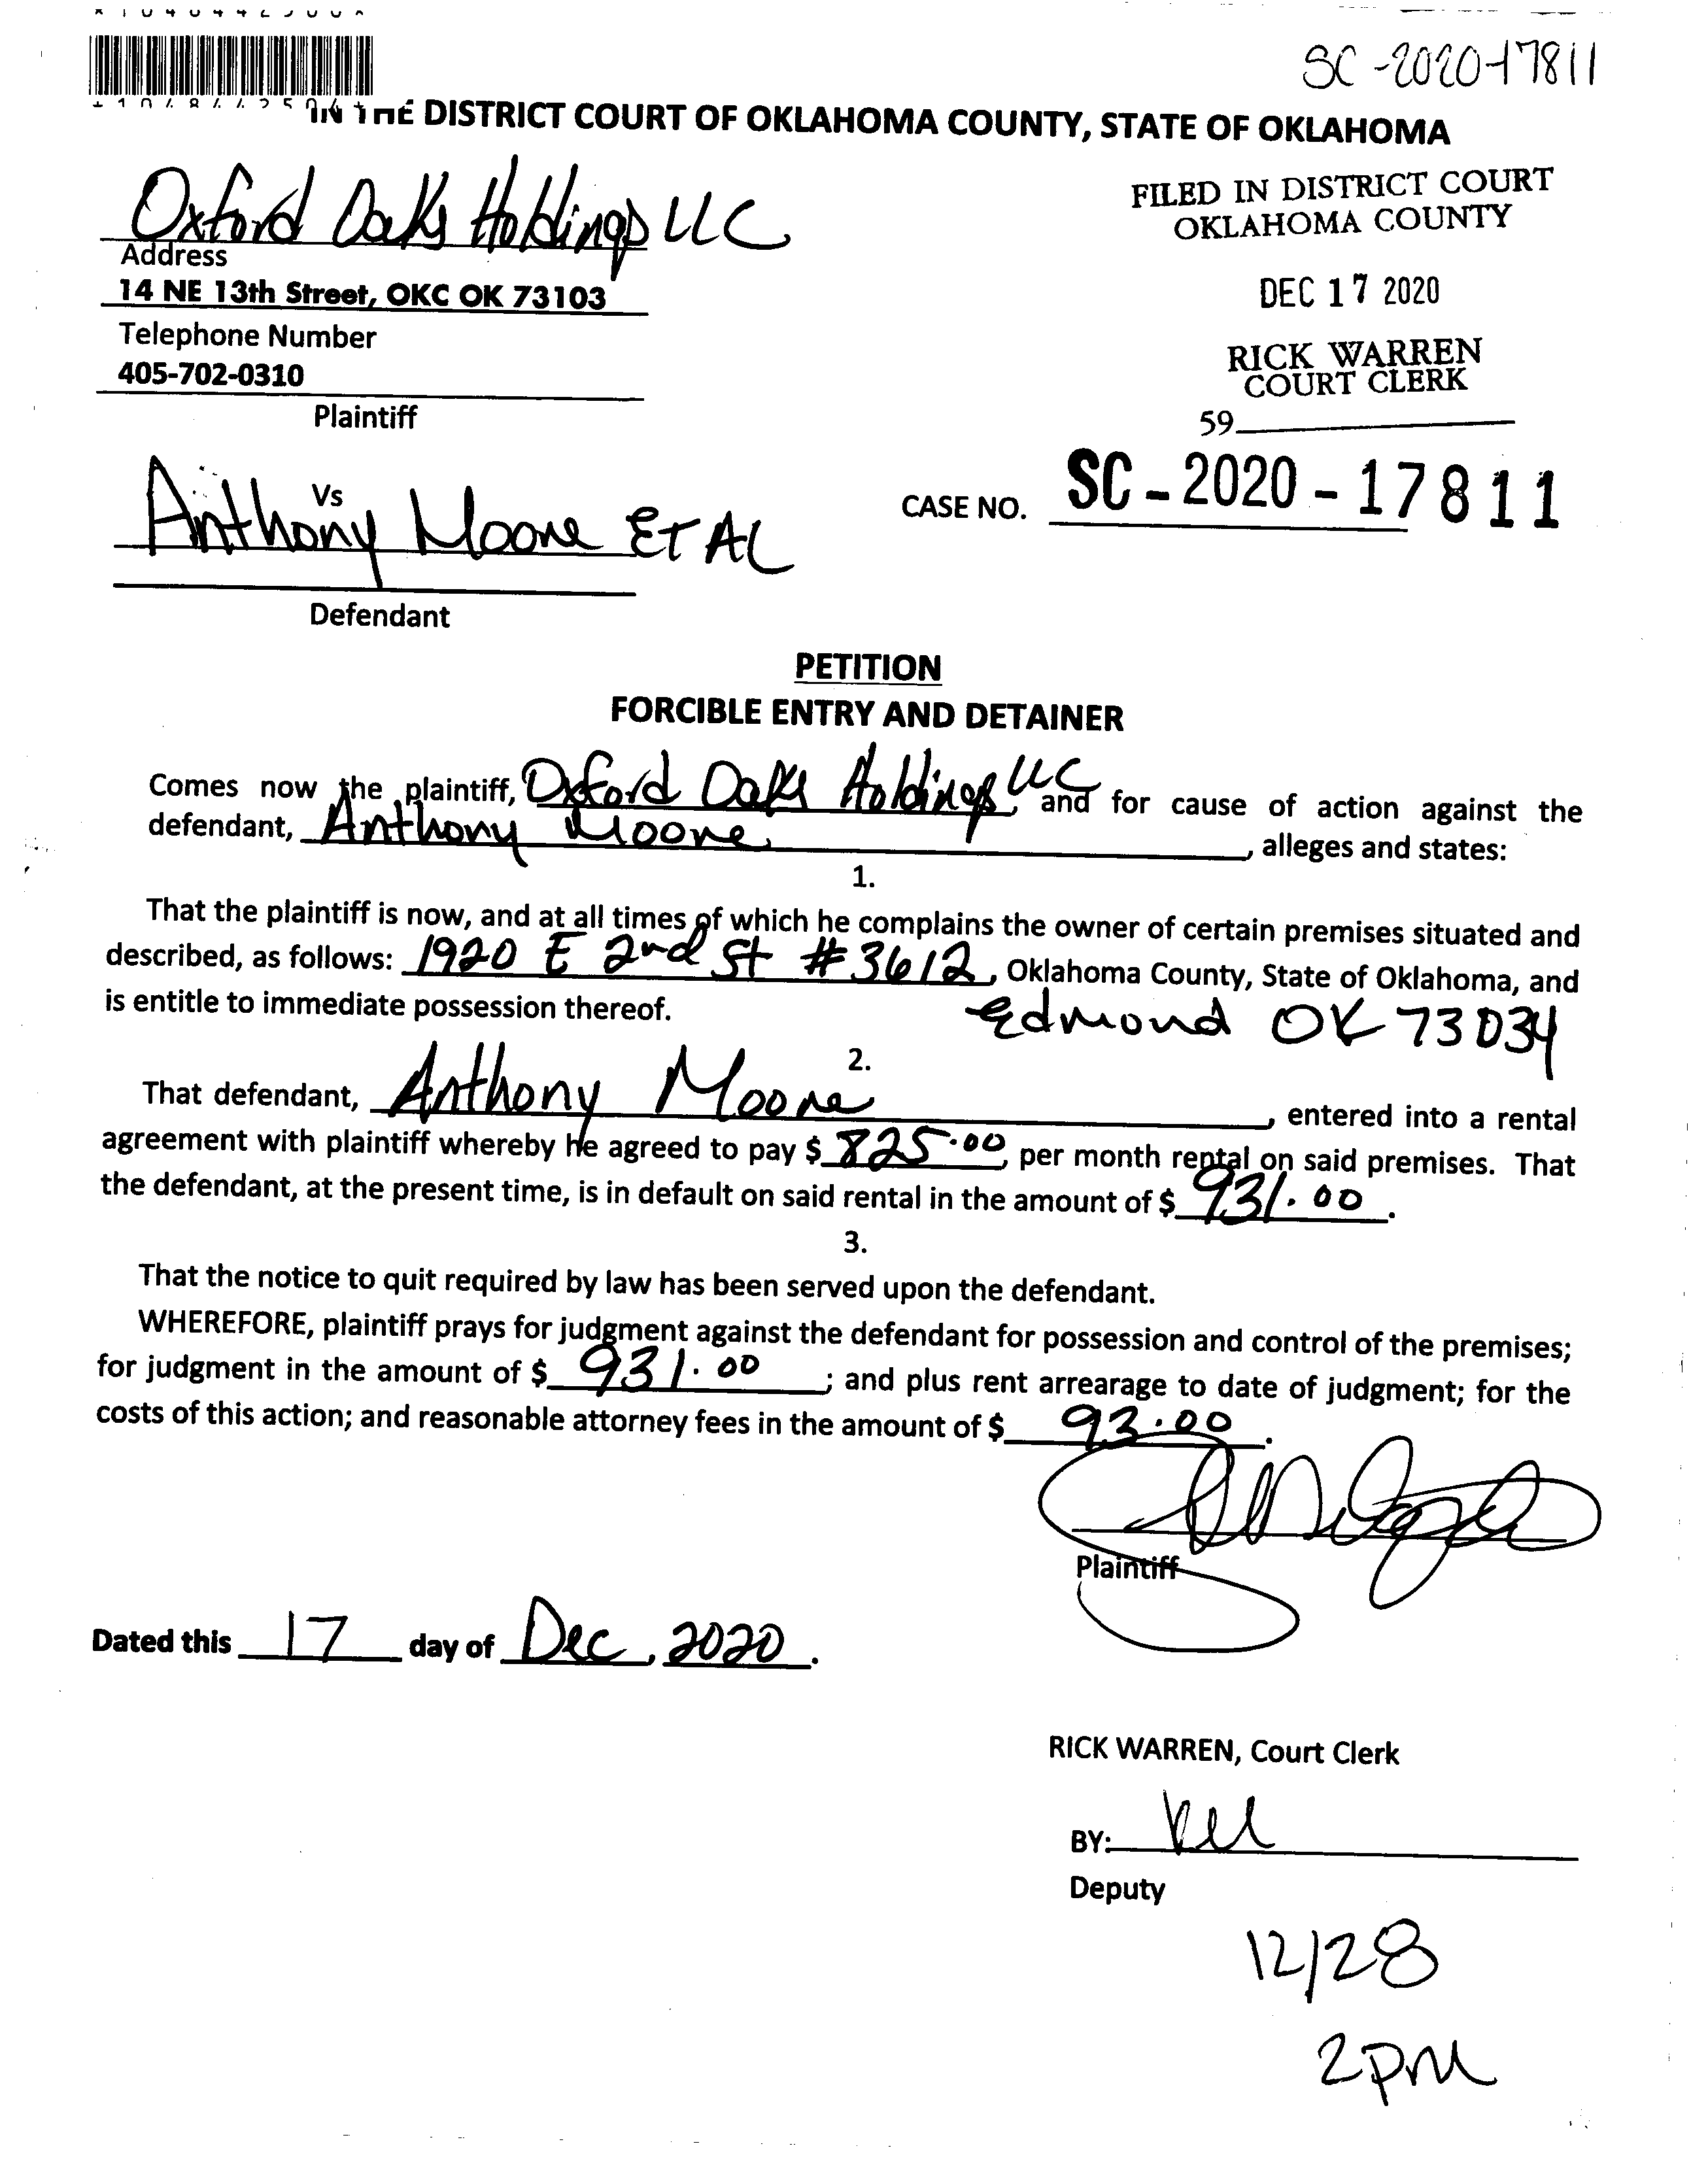 SC-2020-17811
IN THE DISTRICT COURT OF OKLAHOMA COUNTY, STATE OF OKLAHOMA
Oxford Oaks Holdings LLC
Address
14 NE 13th Street, OKC OK 73103
Telephone Number
405-702-0310
Plaintiff
FILED IN DISTRICT COURT
OKLAHOMA COUNTY
DEC 17 2020
RICK WARREN
COURT CLERK
59
Vs
Anthony Moore ET AL
Defendant
CASE NO. SC-2020-17811
PETITION
FORCIBLE ENTRY AND DETAINER
Comes now the plaintiff, Oxford Oaks Holdings LLC, and for cause of action against the
defendant, Anthony Moore, alleges and states:
1.
That the plaintiff is now, and at all times of which he complains the owner of certain premises situated and
described, as follows: 1920 E 2nd St #3612, Oklahoma County, State of Oklahoma, and
is entitle to immediate possession thereof. Edmond OK 73034
2.
That defendant, Anthony Moore, entered into a rental
agreement with plaintiff whereby he agreed to pay $ 825.00, per month rental on said premises. That
the defendant, at the present time, is in default on said rental in the amount of $ 931.00.
3.
That the notice to quit required by law has been served upon the defendant.
WHEREFORE, plaintiff prays for judgment against the defendant for possession and control of the premises;
for judgment in the amount of $ 931.00; and plus rent arrearage to date of judgment; for the
costs of this action; and reasonable attorney fees in the amount of $ 93.00.
Plaintiff
Dated this 17 day of Dec, 2020.
RICK WARREN, Court Clerk
BY:
Deputy
12/28
2pm